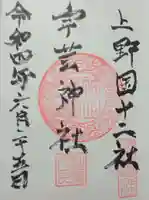 上野国十二社
宇芸神社
令和四年六月二十五日